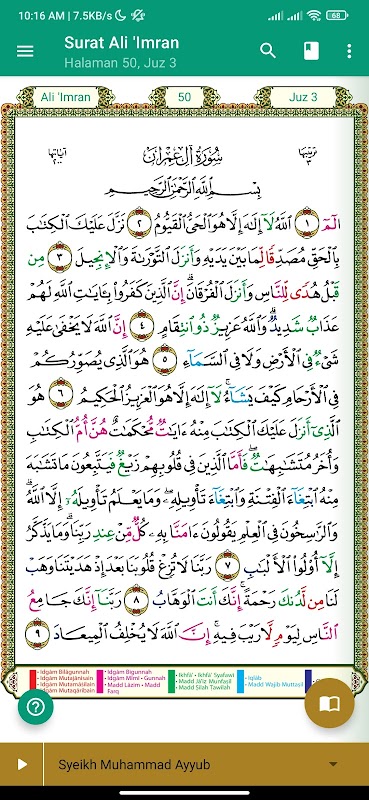 10:16 AM | 7.5KB/s
68
Surat Ali 'Imran
Halaman 50, Juz 3
Ali 'Imran
50
Juz 3
ترتيبها
٣
سُورَةُ آلِ عِمْرَانَ
آياتها
٢٠٠
بِسْمِ اللَّهِ الرَّحْمَٰنِ الرَّحِيمِ
الٓمٓ ١ اللَّهُ لَآ إِلَٰهَ إِلَّا هُوَ الْحَيُّ الْقَيُّومُ ٢ نَزَّلَ عَلَيْكَ الْكِتَٰبَ
بِالْحَقِّ مُصَدِّقًا لِّمَا بَيْنَ يَدَيْهِ وَأَنزَلَ التَّوْرَىٰةَ وَالْإِنجِيلَ ٣ مِن
قَبْلُ هُدًى لِّلنَّاسِ وَأَنزَلَ الْفُرْقَانَ ۗ إِنَّ الَّذِينَ كَفَرُوا۟ بِـَٔايَٰتِ اللَّهِ لَهُمْ
عَذَابٌ شَدِيدٌ ۗ وَاللَّهُ عَزِيزٌ ذُو انتِقَامٍ ٤ إِنَّ اللَّهَ لَا يَخْفَىٰ عَلَيْهِ
شَىْءٌ فِى الْأَرْضِ وَلَا فِى السَّمَآءِ ٥ هُوَ الَّذِى يُصَوِّرُكُمْ
فِى الْأَرْحَامِ كَيْفَ يَشَآءُ ۚ لَآ إِلَٰهَ إِلَّا هُوَ الْعَزِيزُ الْحَكِيمُ ٦ هُوَ
الَّذِىٓ أَنزَلَ عَلَيْكَ الْكِتَٰبَ مِنْهُ ءَايَٰتٌ مُّحْكَمَٰتٌ هُنَّ أُمُّ الْكِتَٰبِ
وَأُخَرُ مُتَشَٰبِهَٰتٌ ۖ فَأَمَّا الَّذِينَ فِى قُلُوبِهِمْ زَيْغٌ فَيَتَّبِعُونَ مَا تَشَٰبَهَ
مِنْهُ ابْتِغَآءَ الْفِتْنَةِ وَابْتِغَآءَ تَأْوِيلِهِۦ ۗ وَمَا يَعْلَمُ تَأْوِيلَهُۥٓ إِلَّا اللَّهُ ۗ
وَالرَّٰسِخُونَ فِى الْعِلْمِ يَقُولُونَ ءَامَنَّا بِهِۦ كُلٌّ مِّنْ عِندِ رَبِّنَا ۗ وَمَا يَذَّكَّرُ
إِلَّآ أُو۟لُوا۟ الْأَلْبَٰبِ ٧ رَبَّنَا لَا تُزِغْ قُلُوبَنَا بَعْدَ إِذْ هَدَيْتَنَا وَهَبْ
لَنَا مِن لَّدُنكَ رَحْمَةً ۚ إِنَّكَ أَنتَ الْوَهَّابُ ٨ رَبَّنَآ إِنَّكَ جَامِعُ
النَّاسِ لِيَوْمٍ لَّا رَيْبَ فِيهِ ۚ إِنَّ اللَّهَ لَا يُخْلِفُ الْمِيعَادَ ٩
• Idgām Bilāgunnah
• Idgām Mutajānisain
• Idgām Mutamāṡilain
• Idgām Mutaqāribain
• Idgām Bigunnah
• Idgām Mīmī • Gunnah
• Madd Lāzim • Madd Farq
• Ikhfā' • Ikhfā' Syafawi
• Madd Jā'iz Munfaṣil
• Madd Ṣilah Ṭawīlah
• Iqlāb
• Madd Wajib Muttaṣil
Syeikh Muhammad Ayyub